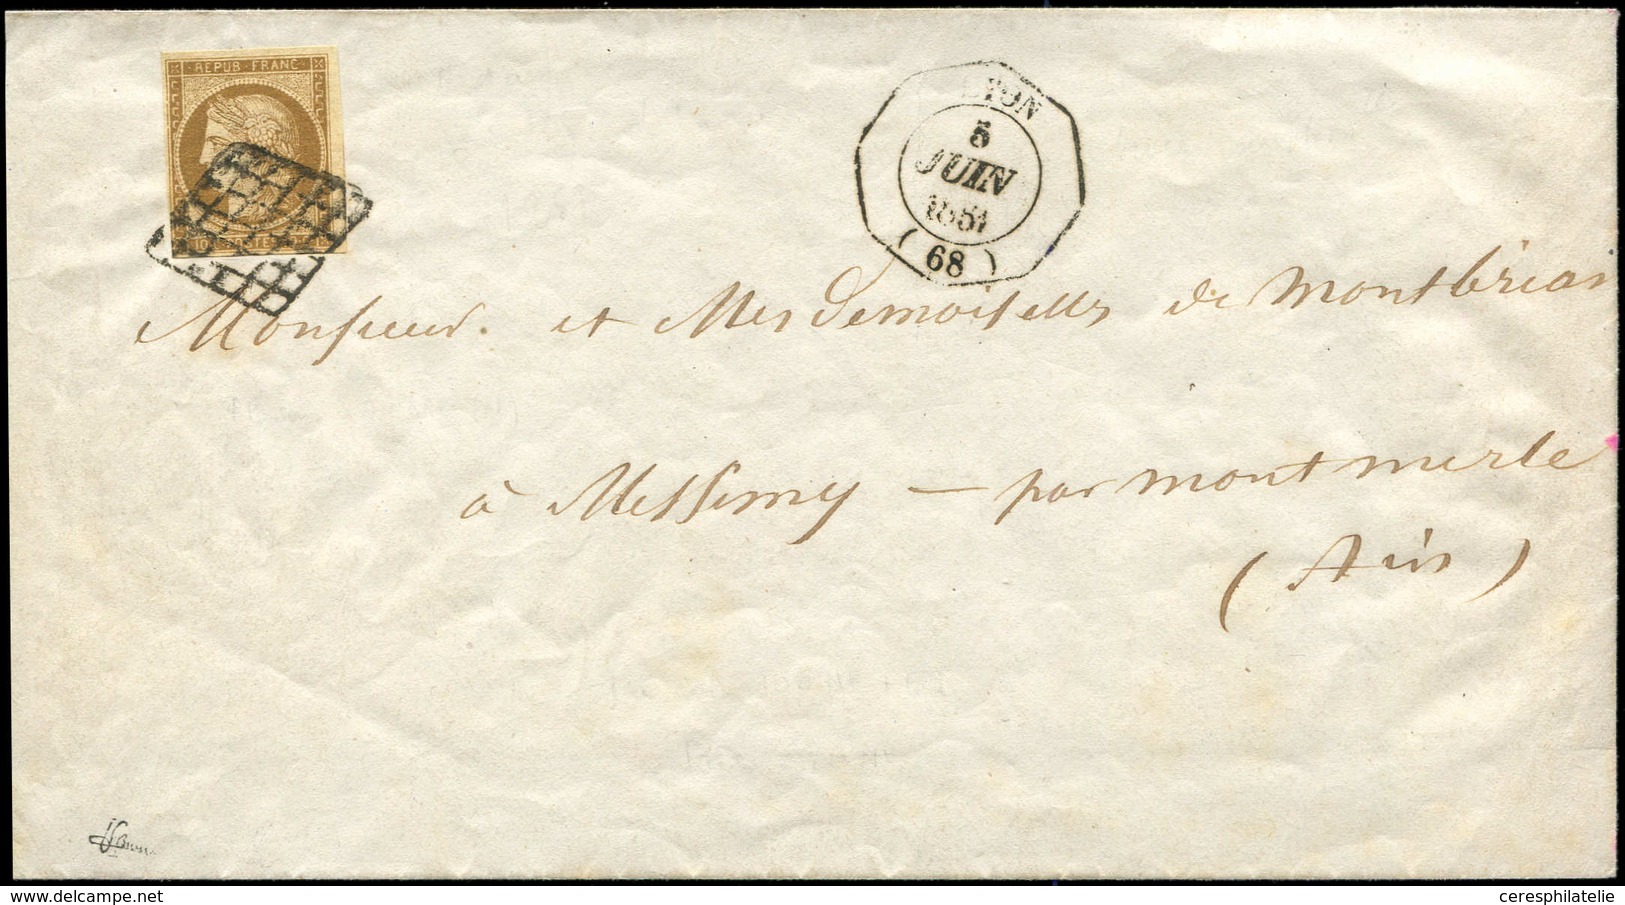 REPUB FRANC
10
LYON
5
JUIN
1851
( 68 )
Monsieur. et Mesdemoiselles de Montbrian
à Messimy — par montmerle
( Ain )
www.delcampe.net
ceresphilatelie